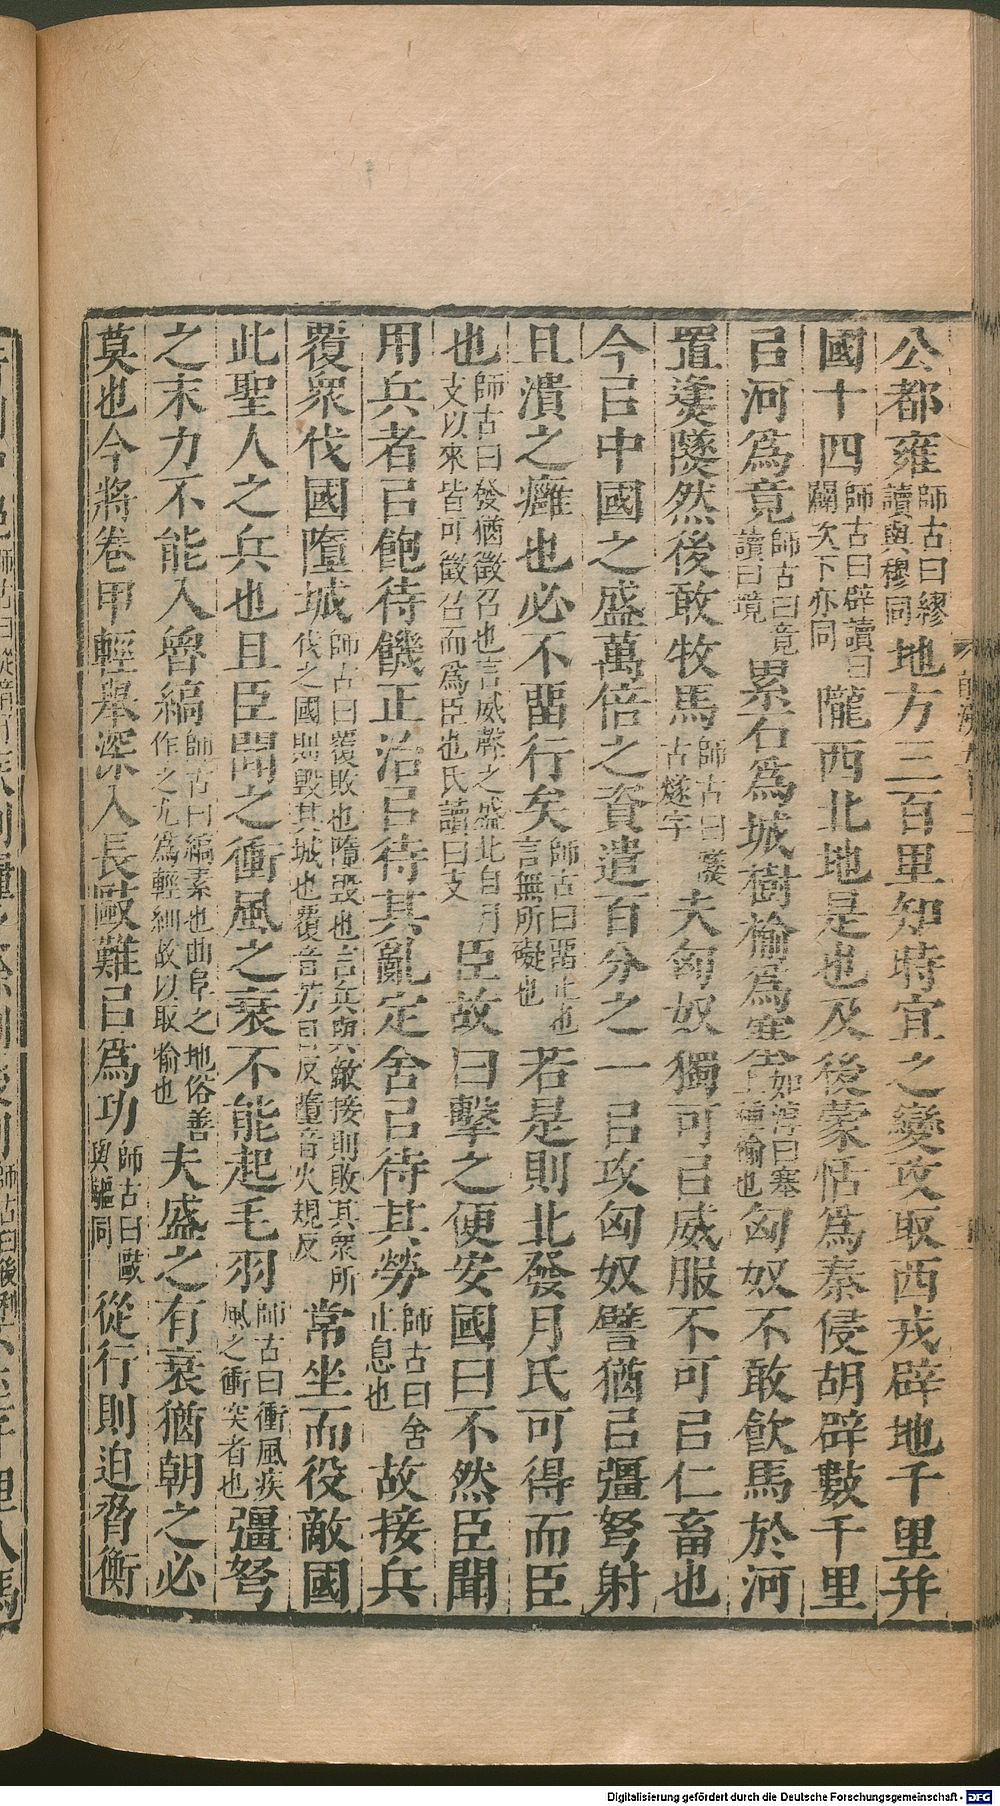 公都雍師古曰繆讀與穆同地方三百里知時宜之變攻取西戎辟地千里并
國十四師古曰辟讀曰闢次下亦同隴西北地是也及後蒙恬爲秦侵胡辟數千里
㠯河爲竟師古曰竟讀曰境累石爲城樹榆爲塞如淳曰塞上種榆也匈奴不敢飮馬於河
置㷭䥙然後敢牧馬師古曰䥙古燧字夫匈奴獨可㠯威服不可㠯仁畜也
今㠯中國之盛萬倍之資遣百分之一㠯攻匈奴譬猶㠯彊弩射
且潰之癰也必不畱行矣師古曰畱止也言無所礙也若是則北發月氏可得而臣
也師古曰發猶徵召也言威聲之盛北自月支以來皆可徵召而爲臣也氏讀曰支臣故曰擊之便安國曰不然臣聞
用兵者㠯飽待饑正治㠯待其亂定舍㠯待其勞師古曰舍止息也故接兵
覆衆伐國墮城師古曰覆敗也隋毀也言兵與敵接則敗其衆所伐之國則毀其城也覆音芳目反隋音火規反常坐而役敵國
此聖人之兵也且臣聞之衝風之衰不能起毛羽師古曰衝風疾風之衝突者也彊弩
之末力不能入魯縞師古曰縞素也曲阜之地俗善作之尤爲輕細故以取喻也夫盛之有衰猶朝之必
莫也今將卷甲輕舉深入長敺難㠯爲功師古曰敺與驅同從行則迫脅衡
Digitalisierung gefördert durch die Deutsche Forschungsgemeinschaft - DFG